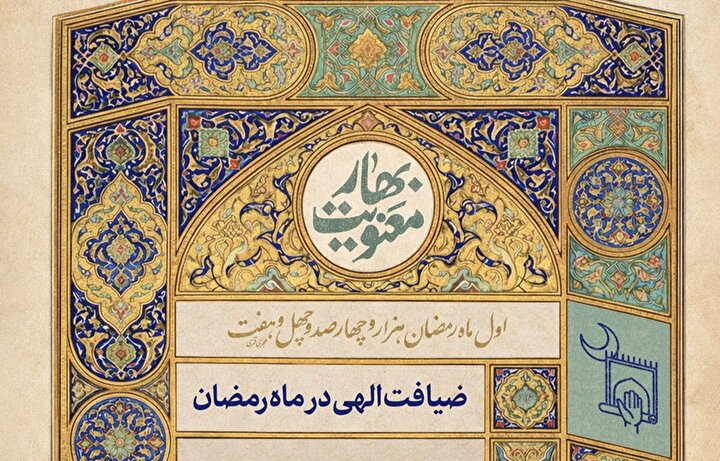 بهار
معنویت
اول ماه رمضان هزار و چهارصد و چهل و هفت
هجری قمری
ضیافت الهی در ماه رمضان